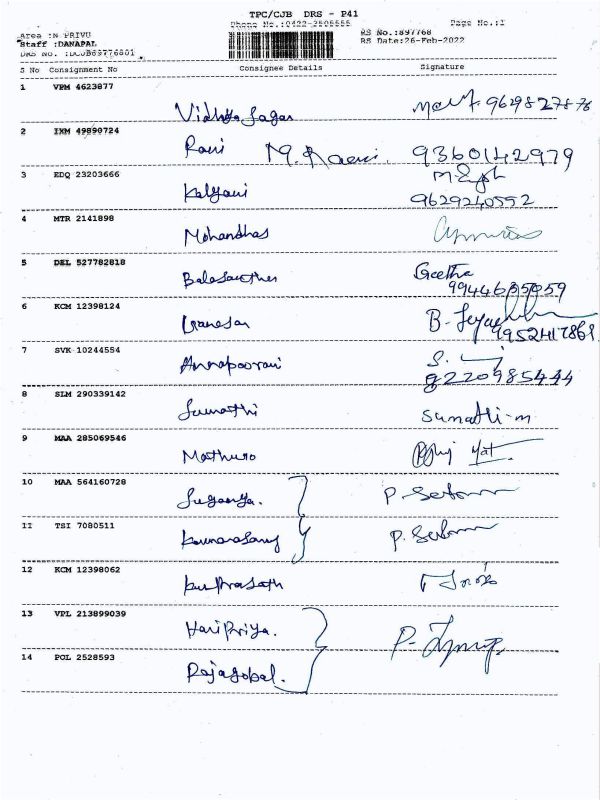 TPC/CJB DRS - P41
Phone No.:0422-2505555 Page No.:1
Area :N PRIVU RS No.:897768
Staff :DANAPAL RS Date:26-Feb-2022
DRS No. :DCJB89776801
S No Consignment No Consignee Details Signature
1 VPM 4623877
Vidhya Sagar 9629827878
2 IXM 49890724
Ravi M. Raavi. 9360142979
3 EDQ 23203666
Kalyani 9629240552
4 MTR 2141898
Mohandhas
5 DEL 527782818
Geetha
9944635059
6 KCM 12398124
Ganesan B.
9952417861
7 SVK 10244554
Annapoorani S.
8220985444
8 SLM 290339142
Sumathi Sumathi-m
9 MAA 285069546
10 MAA 564160728
Suganya.
11 TSI 7080511
12 KCM 12398062
13 VPL 213899039
Haripriya.
14 POL 2528593
Rajagobal.